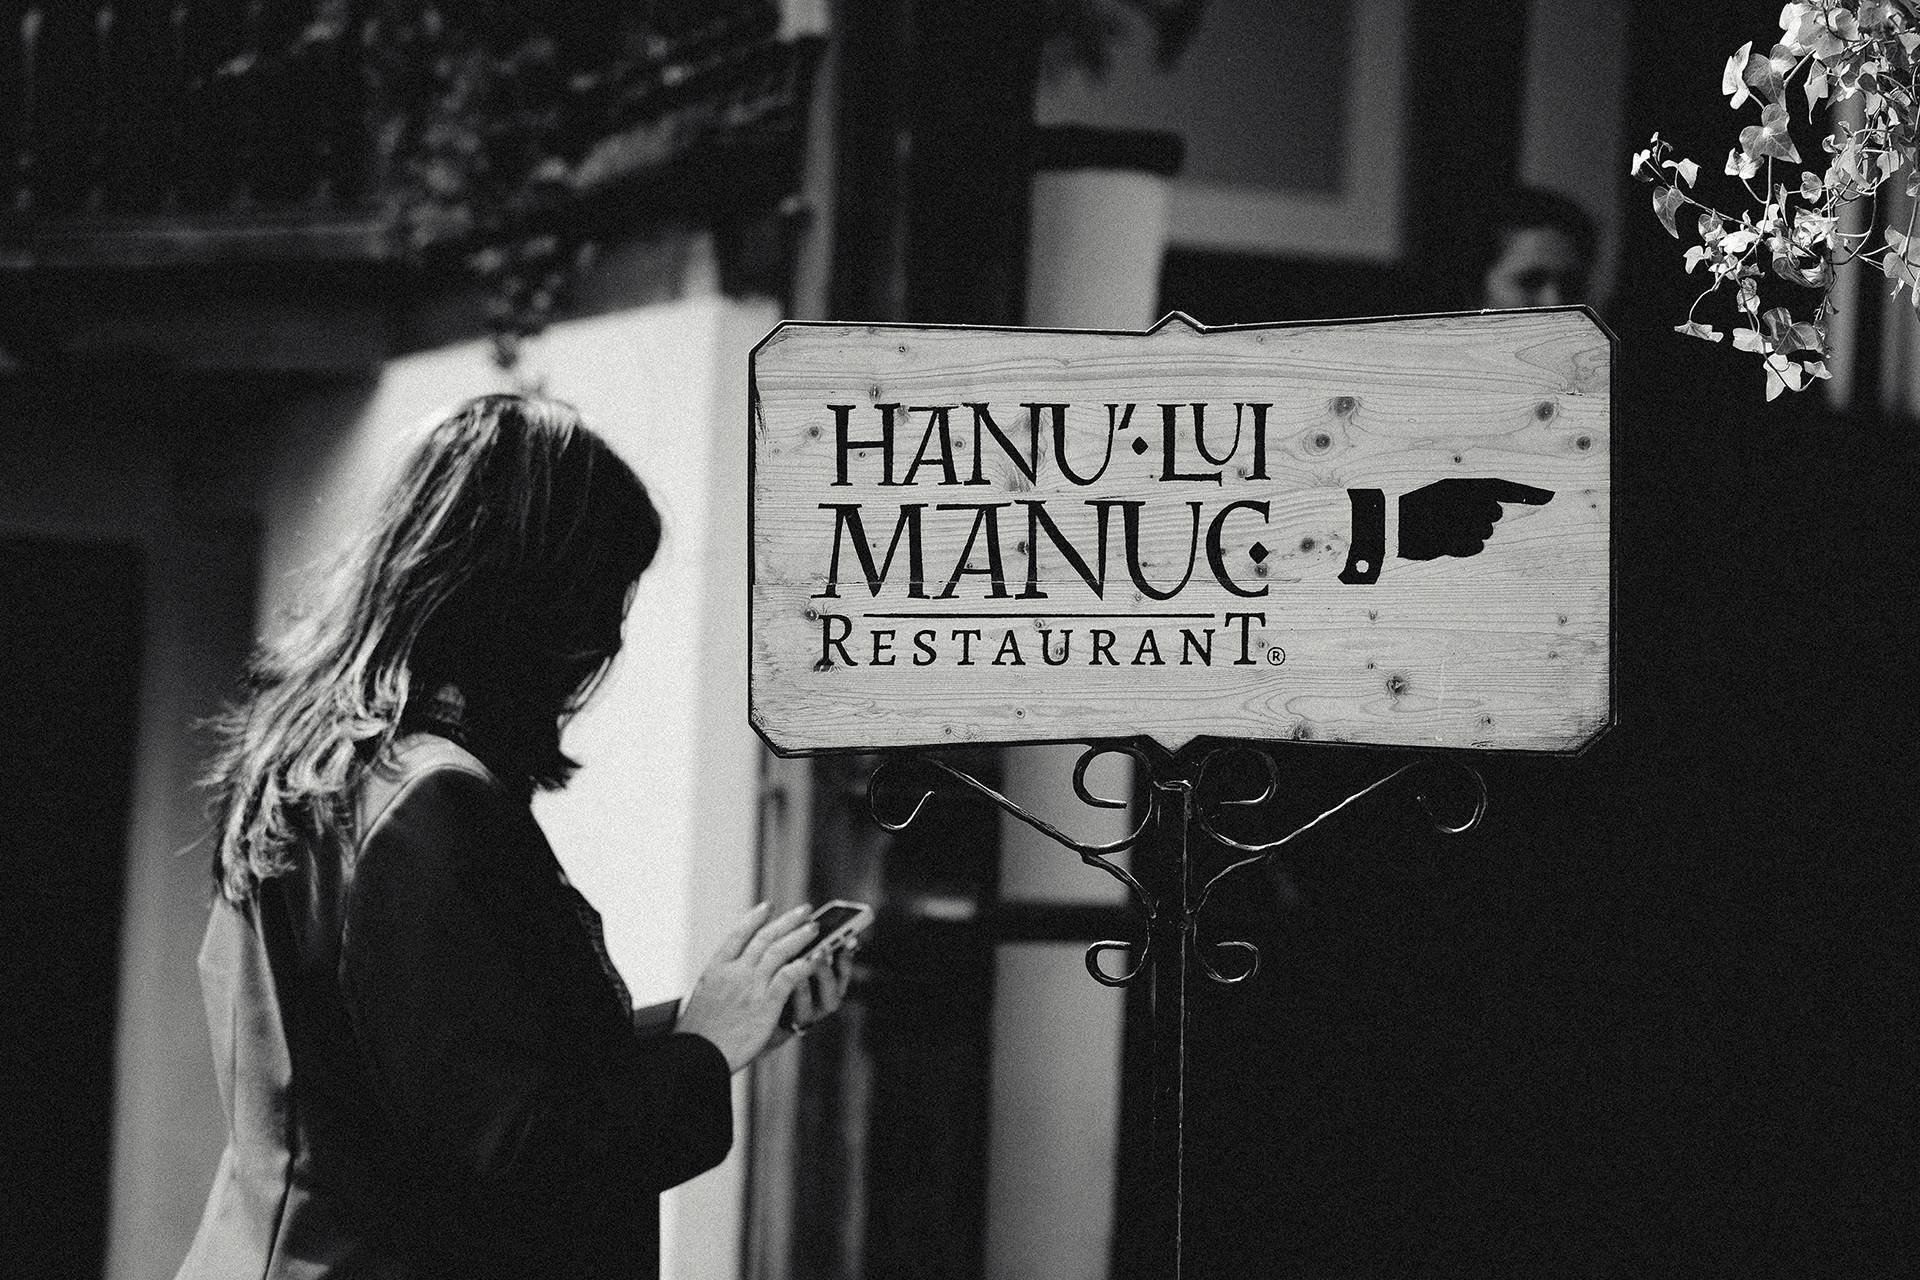 HANU'·LUI
MANUC
RESTAURANT®